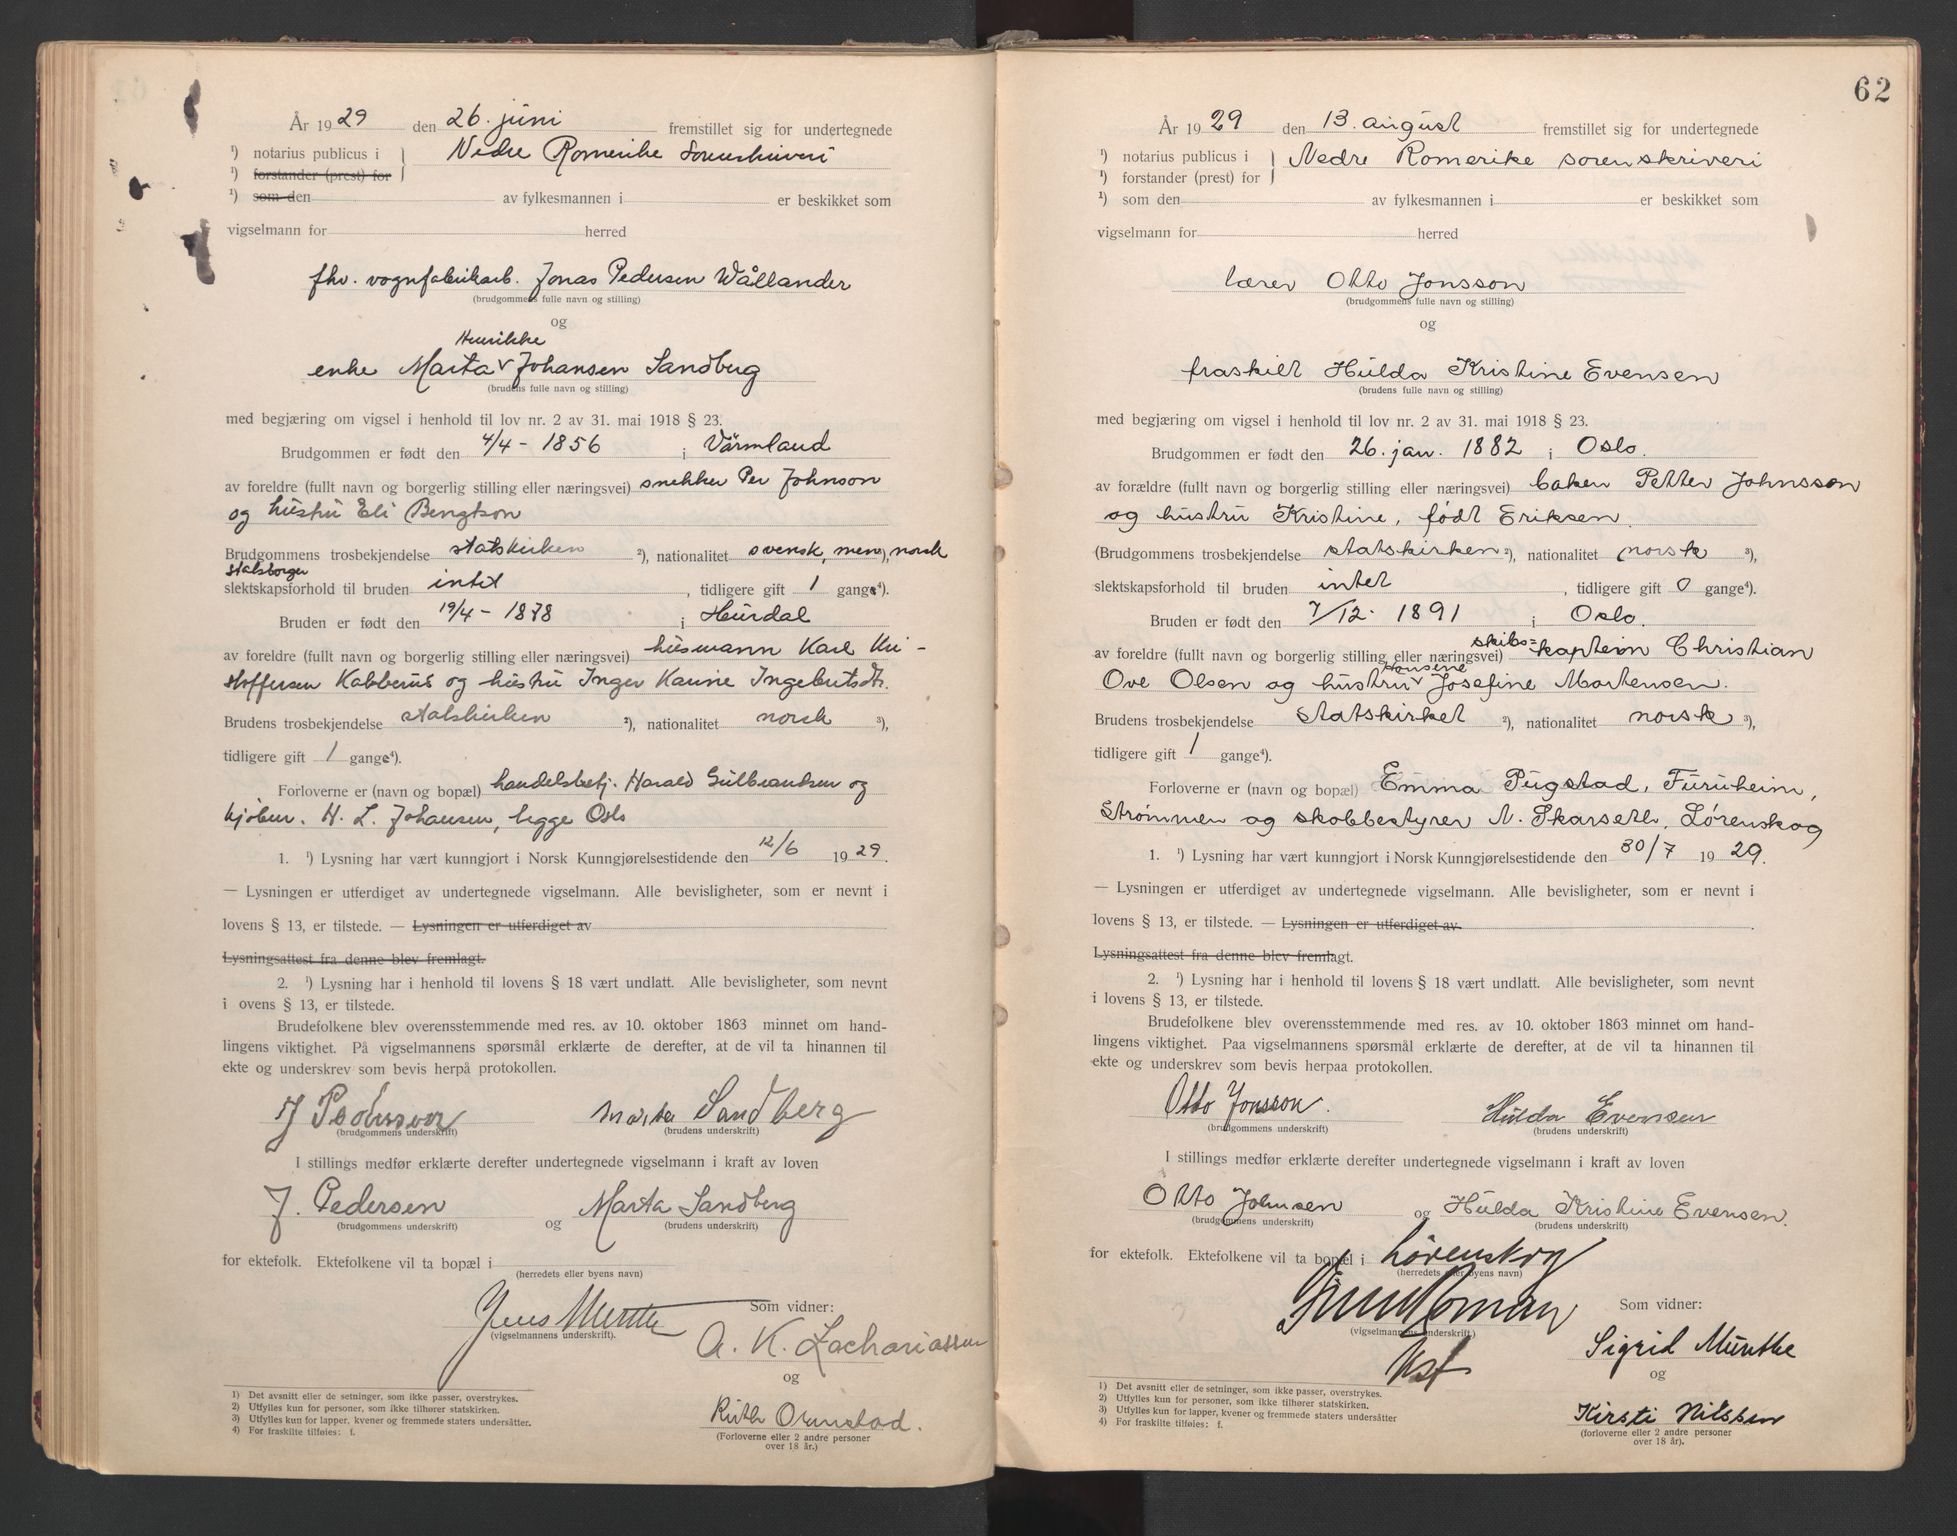 År 1929 den 26. juni fremstillet sig for undertegnede
¹) notarius publicus i Nedre Romerike Sorenskriveri
¹) forstander (prest) for
¹) som den av fylkesmannen i er beskikket som
vigselmann for herred
fhv. vognfabrikarb. Jonas Pedersen Wållander
(brudgommens fulle navn og stilling)
og
Henrikke
enke Marta ᵛ Johansen Sandberg
(brudens fulle navn og stilling)
med begjæring om vigsel i henhold til lov nr. 2 av 31. mai 1918 § 23.
Brudgommen er født den 4/4 - 1856 i Värmland
av foreldre (fullt navn og borgerlig stilling eller næringsvei) snekker Per Johnson
og hustru Eli Bengtson
Brudgommens trosbekjendelse statskirken ²), nationalitet svensk, men ³), norsk
statsborger
slektskapsforhold til bruden intet, tidligere gift 1 gange⁴).
Bruden er født den 19/4 - 1878 i Hurdal
av foreldre (fullt navn og borgerlig stilling eller næringsvei) husmann Karl Kri-
stoffersen Kabberus og hustru Inger Karine Ingebritsdtr.
Brudens trosbekjendelse statskirken ²), nationalitet norsk ³),
tidligere gift 1 gange⁴).
Forloverne er (navn og bopæl) handelsbetj. Harald Gulbrandsen og
kjøbm. H. L. Johansen, begge Oslo
1. ¹) Lysning har vært kunngjort i Norsk Kunngjørelsestidende den 12/6 1929.
— Lysningen er utferdiget av undertegnede vigselmann. Alle bevisligheter, som er nevnt i
lovens § 13, er tilstede. — Lysningen er utferdiget av
Lysningsattest fra denne blev fremlagt.
2. ¹) Lysning har i henhold til lovens § 18 vært undlatt. Alle bevisligheter, som nevnt
i ovens § 13, er tilstede.
Brudefolkene blev overensstemmende med res. av 10. oktober 1863 minnet om hand-
lingens viktighet. På vigselmannens spørsmål erklærte de derefter, at de vil ta hinannen til
ekte og underskrev som bevis herpå protokollen.
J Pedersen Marta Sandberg
(brudgommens underskrift) (brudens underskrift)
I stillings medfør erklærte derefter undertegnede vigselmann i kraft av loven
J. Pedersen og Marta Sandberg
(brudgommens underskrift) (brudens underskrift)
for ektefolk. Ektefolkene vil ta bopæl i
(herredets eller byens navn)
Jens Munthe Som vidner:
(vigselmannens underskrift). A. K. Zachariassen
og
Ruth Ormstad.
(Forloverne eller 2 andre personer
over 18 år.)
1) Det avsnitt eller de setninger, som ikke passer, overstrykes.
2) Utfylles kun for personer, som ikke tilhører statskirken.
3) Utfylles kun for lapper, kvener og fremmede staters undersåtter.
4) For fraskilte tilføies: f.
62
År 1929 den 13. august fremstillet sig for undertegnede
¹) notarius publicus i Nedre Romerike sorenskriveri
¹) forstander (prest) for
¹) som den av fylkesmannen i er beskikket som
vigselmann for herred
lærer Otto Jonsson
(brudgommens fulle navn og stilling)
og
fraskilt Hulda Kristine Evensen
(brudens fulle navn og stilling)
med begjæring om vigsel i henhold til lov nr. 2 av 31. mai 1918 § 23.
Brudgommen er født den 26. jan. 1882 i Oslo.
av forældre (fullt navn og borgerlig stilling eller næringsvei) baker Petter Johnsson
og hustru Kristine, født Eriksen.
(Brudgommens trosbekjendelse statskirken ²), nationalitet norsk ³),
slektskapsforhold til bruden intet, tidligere gift 0 gange⁴).
Bruden er født den 7/12. 1891 i Oslo.
av foreldre (fullt navn og borgerlig stilling eller næringsvei) skibs=kaptein Christian
Ove Olsen og hustru ᵛ Josefine Mortensen.
Brudens trosbekjendelse statskirket ²), nationalitet norsk ³),
tidligere gift 1 gange⁴).
Forloverne er (navn og bopæl) Emma Pugstad, Furuheim,
Strømmen og skobbestyrer N. Skarseth, Lørenskog
1. ¹) Lysning har vært kunngjort i Norsk Kunngjørelsestidende den 30/7 1929.
— Lysningen er utferdiget av undertegnede vigselmann. Alle bevisligheter, som er nevnt i
lovens § 13, er tilstede. — Lysningen er utferdiget av.
Lysningsattest fra denne blev fremlagt.
2. ¹) Lysning har i henhold til lovens § 18 vært undlatt. Alle bevisligheter, som nevnt
i lovens § 13, er tilstede.
Brudefolkene blev overensstemmende med res. av 10. oktober 1863 minnet om hand-
lingens viktighet. Paa vigselmannens spørsmål erklærte de derefter, at de vil ta hinannen til
ekte og underskrev som bevis herpaa protokollen.
Otto Jonsson. Hulda Evensen
(brudgommens underskrift) (brudens underskrift)
I stillings medfør erklærte derefter undertegnede vigselmann i kraft av loven
Otto Johnsen og Hulda Kristine Evensen.
(brudgommens underskrift) (brudens underskrift)
for ektefolk. Ektefolkene vil ta bopæl i Lørenskog
(herredets eller byens navn)
Som vidner:
(vigselmannens underskrift)
Sigrid Munthe
og
Kirsti Nilssen
(forloverne eller 2 andre personer
over 18 år).
1) Det avsnitt eller de setninger, som ikke passer, overstrykes.
2) Utfylles kun for personer, som ikke tilhører statskirken.
3) Utfylles kun for lapper, kvener og fremmede staters undersåtter
4) For fraskilte tilføies: f.